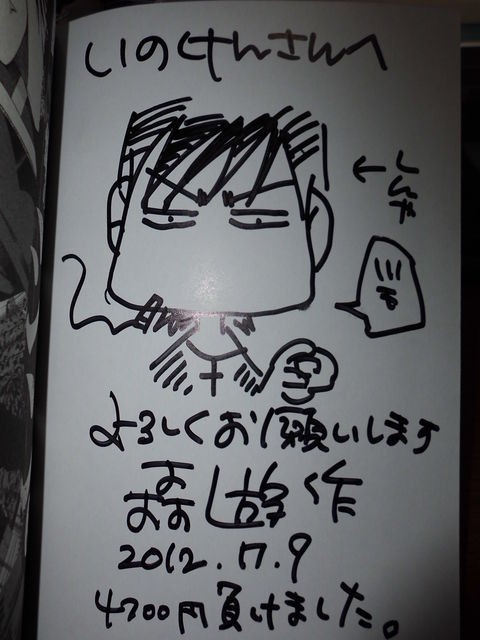 いのけんさんへ
←しんや
よろしくお願いします
2012.7.9
4700円負けました。